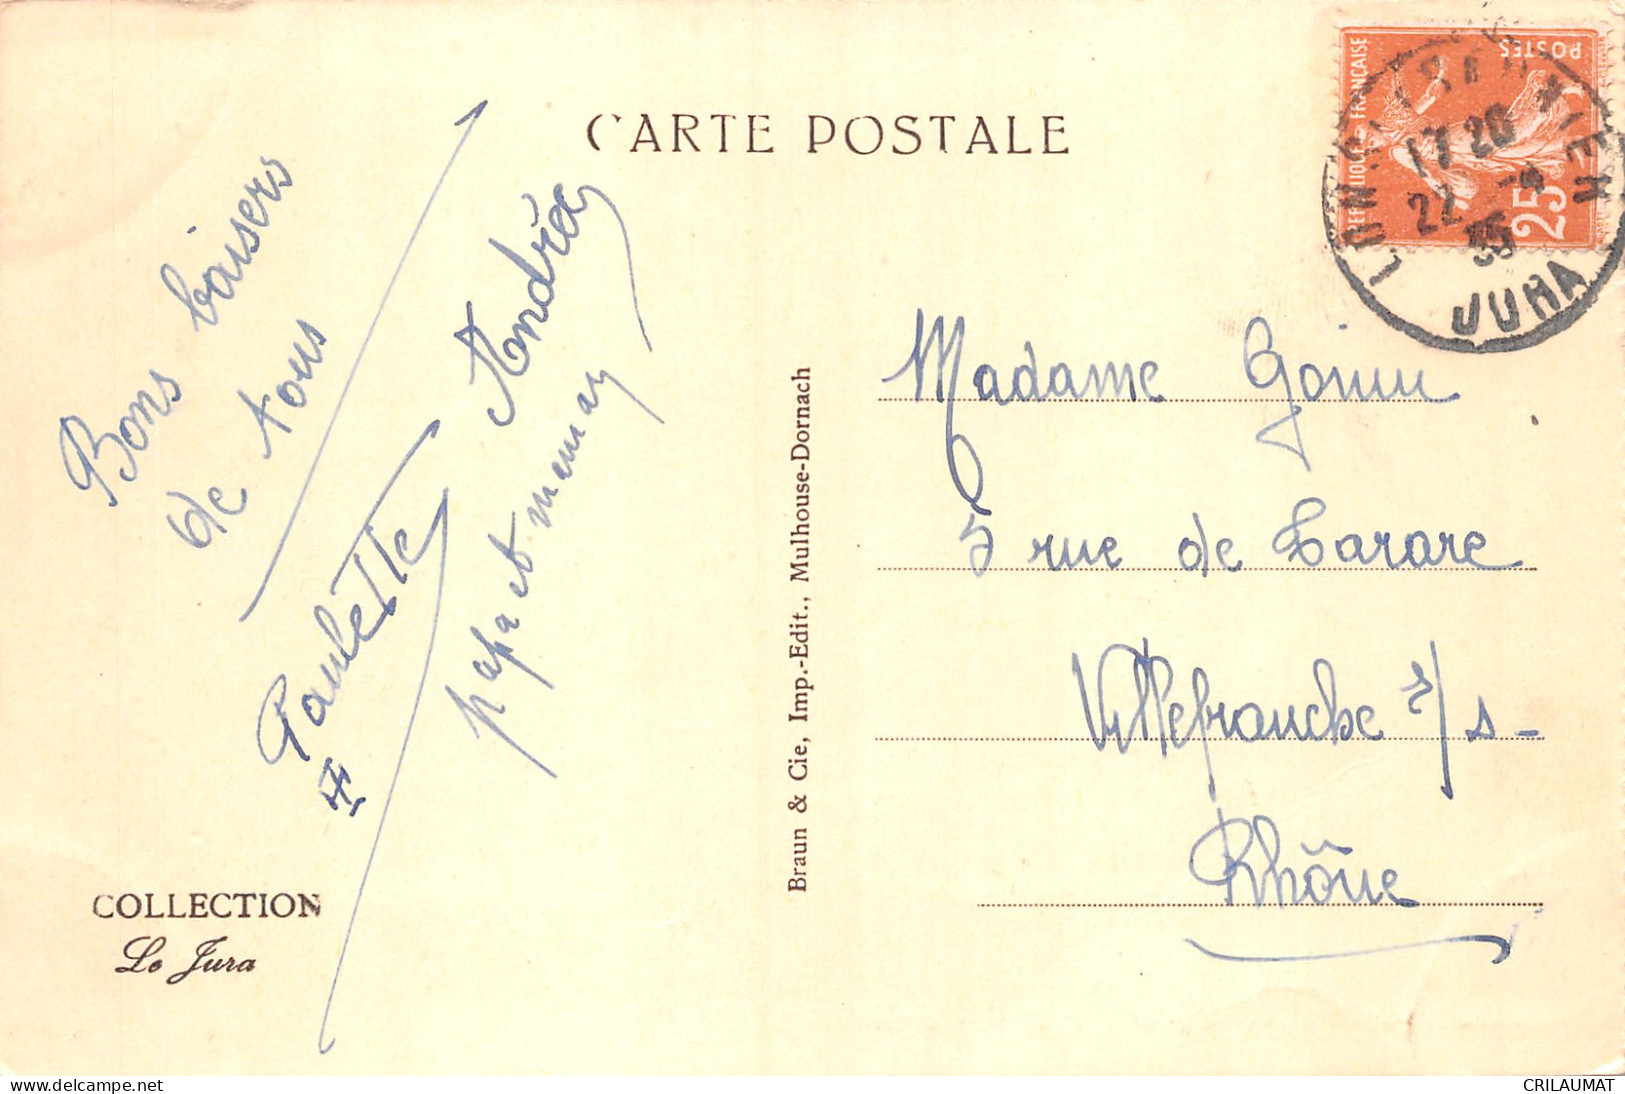 CARTE POSTALE
Bons baisers
de tous
Paulette
Andrée
papa et maman
COLLECTION
Le Jura
Braun & Cie, Imp.-Edit., Mulhouse-Dornach
POSTES
REPUBLIQUE FRANCAISE
25
17 20
22
35
JURA
Madame
5 rue de Tarare
Villefranche s/s-
Rhône
delcampe.net
CRILAUMAT